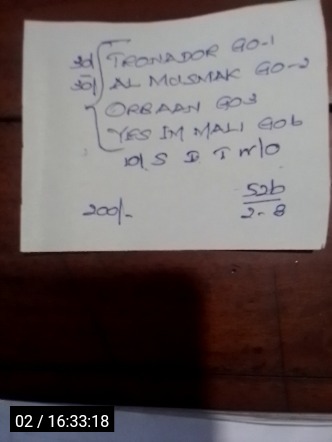 30/ TRONADOR GO-1
30/ AL MUSMAK GO-2
ORBAAN GO3
YES IM MALI GO6
S D T W/O
200/- 526
2-8
02 / 16:33:18